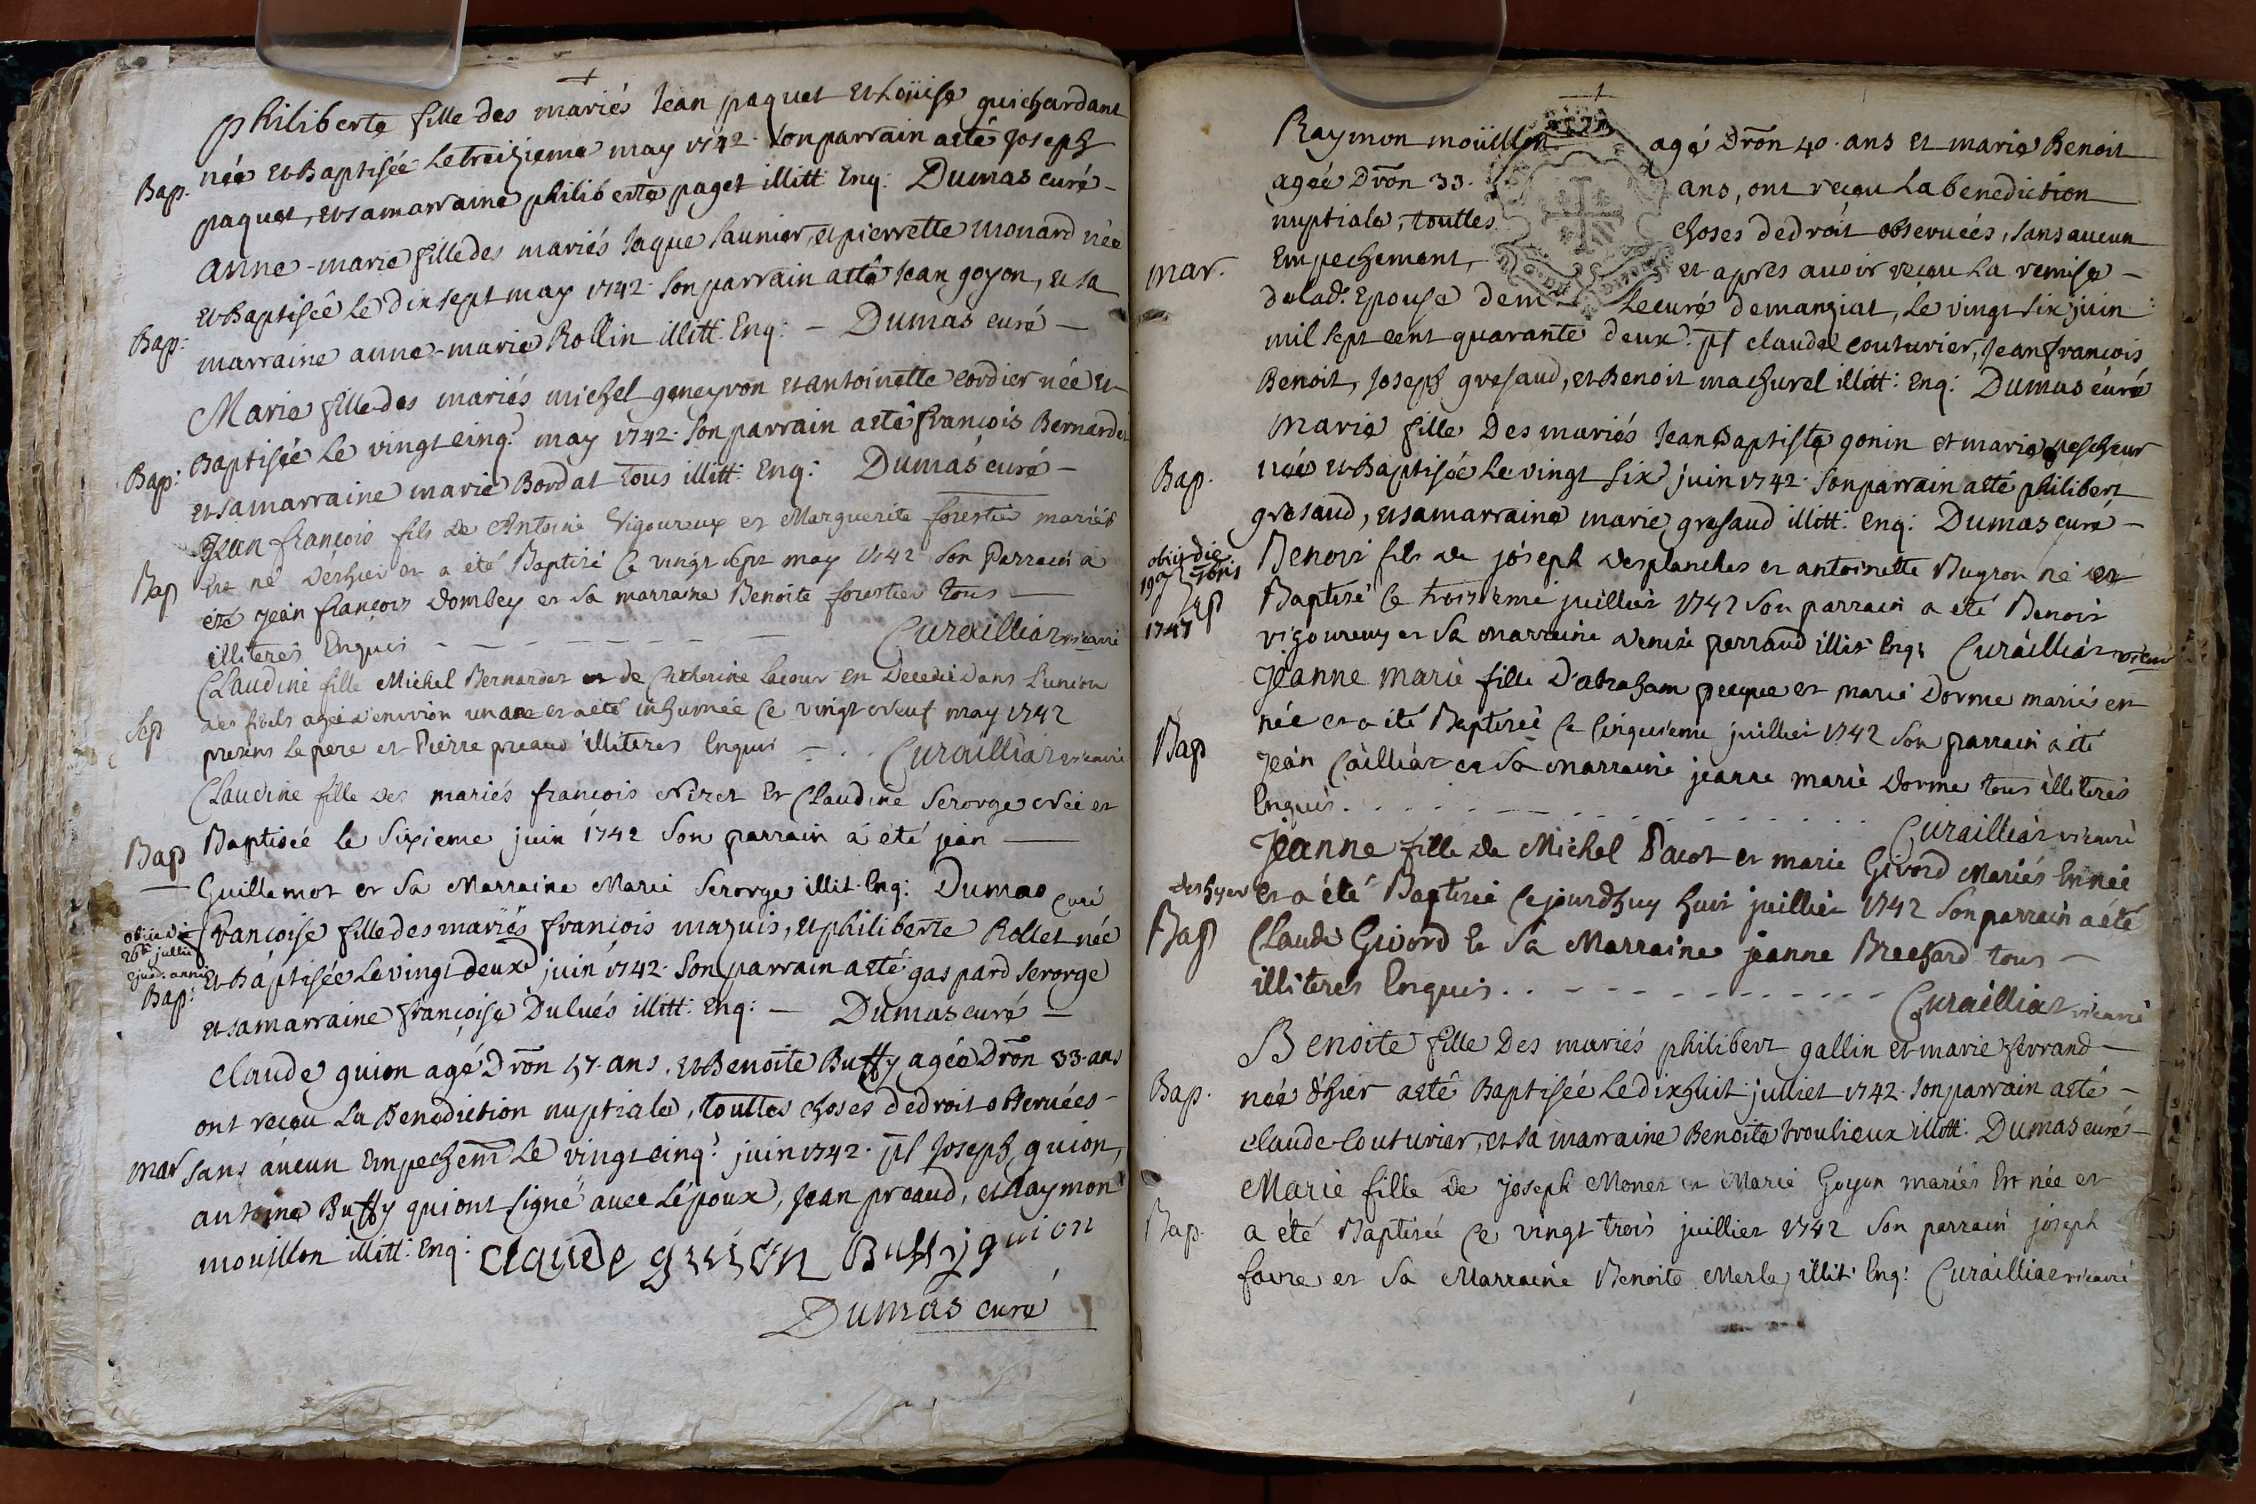 philiberte fille des mariés Jean paquet et Loüise guichardant
Bap. née et Baptisée le treizieme may 1742. Son parrain a eté Joseph
paquet, et sa marraine philiberte paget illitt: Enq: Dumas curé -
anne-marie fille des mariés Jaque Saunier, et pierrette monard née
Bap: et Baptisée le dix sept may 1742. Son parrain a eté Jean goyon, et sa
marraine anne-marie Rollin illitt: Enq: - Dumas curé -
Marie fille des mariés michel geneyvon et antoinette Cordier née et
Bap: Baptisée le vingt cinq.e may 1742. Son parrain a eté françois Bernardet
et sa marraine marie Bordat tous illitt: Enq: Dumas curé -
Jean françois fils de Antoine Vigoureux et Marguerite forestie mariés
Bap est né deshier et a eté Baptisé ce vingt sept may 1742 Son Parrain a
été Jean françois Dombey et sa marraine Benoite forestier tous
illiteres Enquis - - - Curailliat vicaire
Claudine fille Michel Bernardet et de Catherine Lacour est Decedée dans l'union
Sep des fidels agée d'environ un ane et a eté inhumée ce vingt neuf may 1742
presens le pere et Pierre preaud illiteres Enquis - . . Curailliat vicaire
Claudine fille des mariés françois Nizet et Claudine Serorge née et
Bap Baptisée le sixieme juin 1742 Son parrain a été jean
Guillemot et sa Marraine Marie Serorge illit. Enq: Dumas Curé
obiit die 26a jullii ejusd. anni
françoise fille des mariés françois mazuis, et philiberte Rollet née
Bap: et Baptisée le vingt deux juin 1742. Son parrain a eté gaspard Serorge
et sa marraine françoise Dulués illitt: Enq: - Dumas curé -
Claude guion agé Dron 47. ans, et Benoite Buffy agée Dron 33. ans
ont reçeu la Benediction nuptiale, touttes choses de droit observées -
mar sans aucun Empechem le vingt cinq.e juin 1742. pt Joseph guion,
antoine Buffy qui ont signé avec l'époux, Jean preaud, et Raymon
mouillon illitt: Enq: claude guion Buffy guion
Dumas curé
Raymon moüillon agé Dron 40. ans et marie Benoit
agée Dron 33. ans, ont reçeu la benediction
nuptiale, touttes choses de droit observées, sans aucun
mar. Empechement, et apres avoir reçeu la remise -
de lad. Epouse de m le curé de manziat, le vingt six juin
mil sept cent quarante deux. pt claude couturier, Jean françois
Benoit, Joseph gresaud, et Benoit machurel illitt: Enq: Dumas curé
Marie fille des mariés Jean Baptiste gonin et marie pescheur
Bap. née et Baptisée le vingt six juin 1742. Son parrain a eté philibert
gresaud, et sa marraine marie gresaud illitt: Enq: Dumas curé -
obiit die 19a 1747
Benoit fils de joseph desplanches et antoinette Bugron né et
Bap Baptisé ce troisieme juillier 1742 Son parrain a été Benoit
vigoureux et sa marraine denise perraud illit: Enq: Curailliat vicaire
Jeanne Marie fille d'abraham pecque et marie Dorme mariés est
Bap née et a été Baptisée ce cinquieme juillier 1742 Son parrain a été
Jean Cailliat et sa marraine jeanne marie Dorme tous illiteres
Enquis. . . . Curailliat vicaire
Jeanne fille de Michel Pacot et marie Givord Mariés est née
deshyer et a été Baptisée cejourdhuy huit juillier 1742 Son parrain a été
Bap Claude Givord et sa Marraine jeanne Brechard tous -
illiteres Enquis. . - - - Curailliat vicaire
Benoite fille des mariés philibert gallin et marie ferrand -
Bap. née d'hier a eté Baptisée le dix huit julliet 1742. Son parrain a eté -
claude couturier, et sa marraine Benoite troulieux illitt: Dumas curé -
Marie fille de joseph Monet et Marie Goyon mariés est née et
Bap. a été Baptisée ce vingt trois juillier 1742 Son parrain joseph
favre et sa Marraine Benoite Merle illit: Enq: Curailliat vicaire